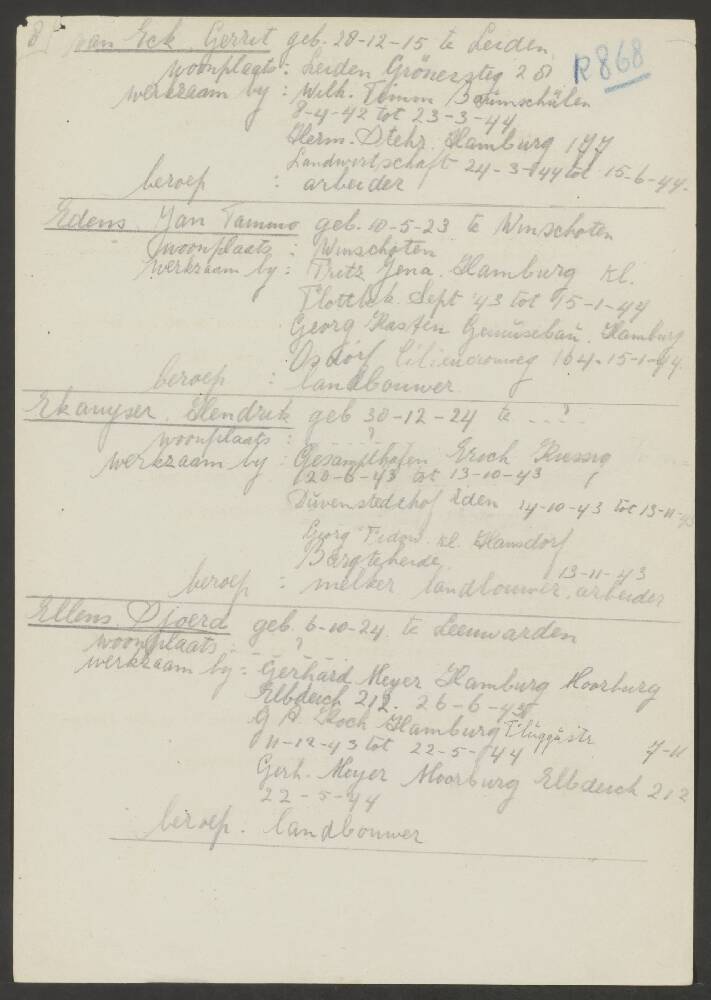 8 van Eck Gerrit geb. 28-12-15 te Leiden
R868
woonplaats : Leiden
werkzaam by : Wilh. Timm Baumschülen
8-4-42 tot 23-3-44
Herm. Stehr. Hamburg
Landwirtschaft 24-3-44 tot 15-6-44.
beroep : arbeider
Edens Jan Tammo geb. 10-5-23 te Winschoten
woonplaats : Winschoten
werkzaam by : Fritz Jena. Hamburg kl.
Flottbek. Sept 43 tot 15-1-44
Georg Kasten Gemüsebau. Hamburg
Osdorf 15-1-44.
beroep : landbouwer
Ekamper. Hendrik geb 30-12-24 te - - ?
woonplaats : - - - ?
werkzaam by : Erich
20-6-43 tot 13-10-43
14-10-43 tot 13-11-43
Georg kl. Hansdorf
Bargteheide 13-11-43
beroep : melker landbouwer. arbeider
Ellens. Djoerd geb. 6-10-24. te Leeuwarden
woonplaats : - - ?
werkzaam by : Gerhard Meyer Hamburg Moorburg
Elbdeich 212. 26-6-43
Hamburg 7-11
11-12-43 tot 22-5-44
Gerh. Meyer Moorburg Elbdeich 212
22-5-44
beroep. landbouwer